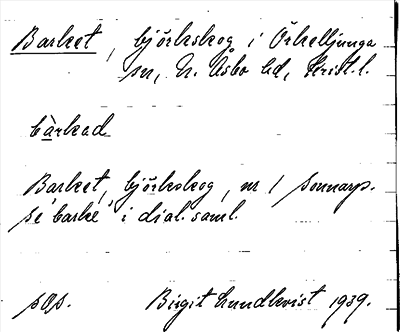 Barket, björkskog i Örkelljunga
sn, N. Åsbo hd, Krist. l.
bàrkad
Barket, björkskog, nr 1 Sonnarp.
se 'barke' i dial. saml.
pop. Birgit Lundkvist 1939.